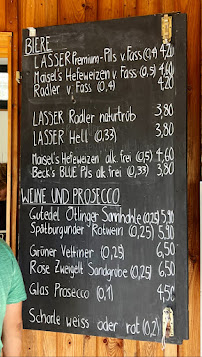 BIERE
LASSER Premium-Pils v. Fass (0,4) 4,20
Maisel's Hefeweizen v. Fass (0,5) 4,60
Radler v. Fass (0,4) 4,20
LASSER Radler naturtrüb 3,80
LASSER Hell (0,33) 3,80
Maisel's Hefeweizen alk. frei (0,5) 4,60
Beck's BLUE Pils alk. frei (0,33) 3,80
WEINE UND PROSECCO
Gutedel Ötlinger Sonnhohle (0,25) 5,90
Spätburgunder Rotwein (0,25) 5,90
Grüner Veltiner (0,25) 6,50
Rose Zweigelt Sandgrube (0,25) 6,50
Glas Prosecco (0,1) 4,50
Schorle weiss oder rot (0,2)